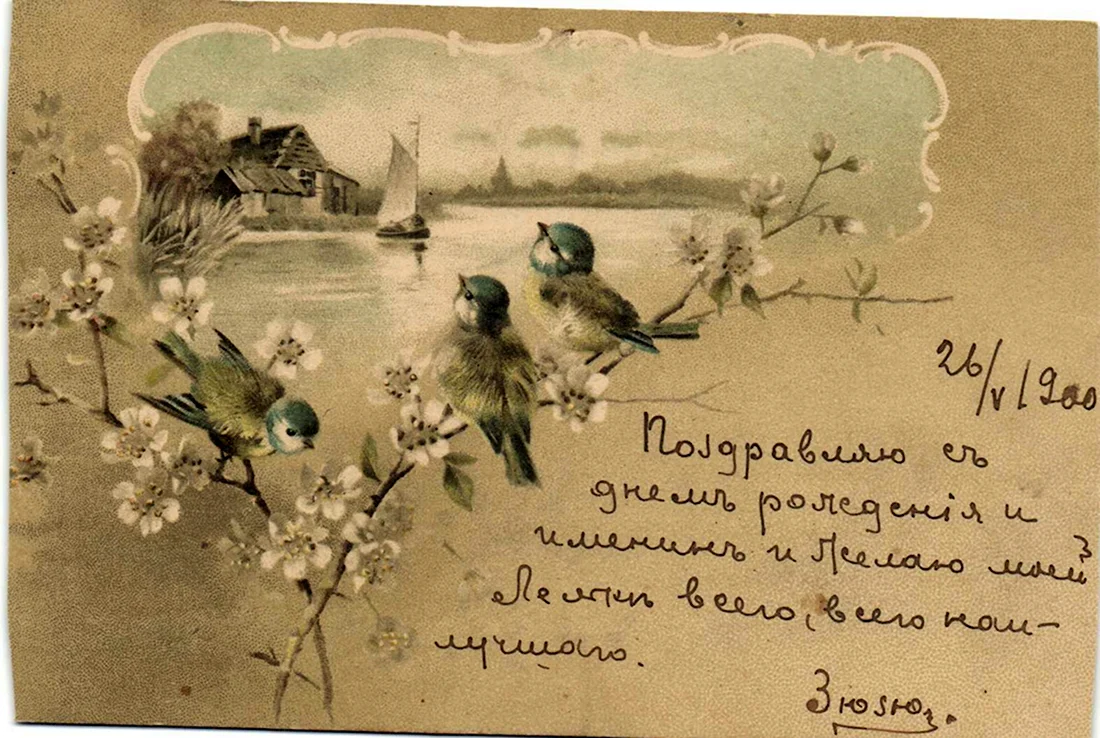 26/V 1900
Поздравляю съ
днемъ рожденія и
именинъ и желаю моей
всего, всего наи-
лучшаго.